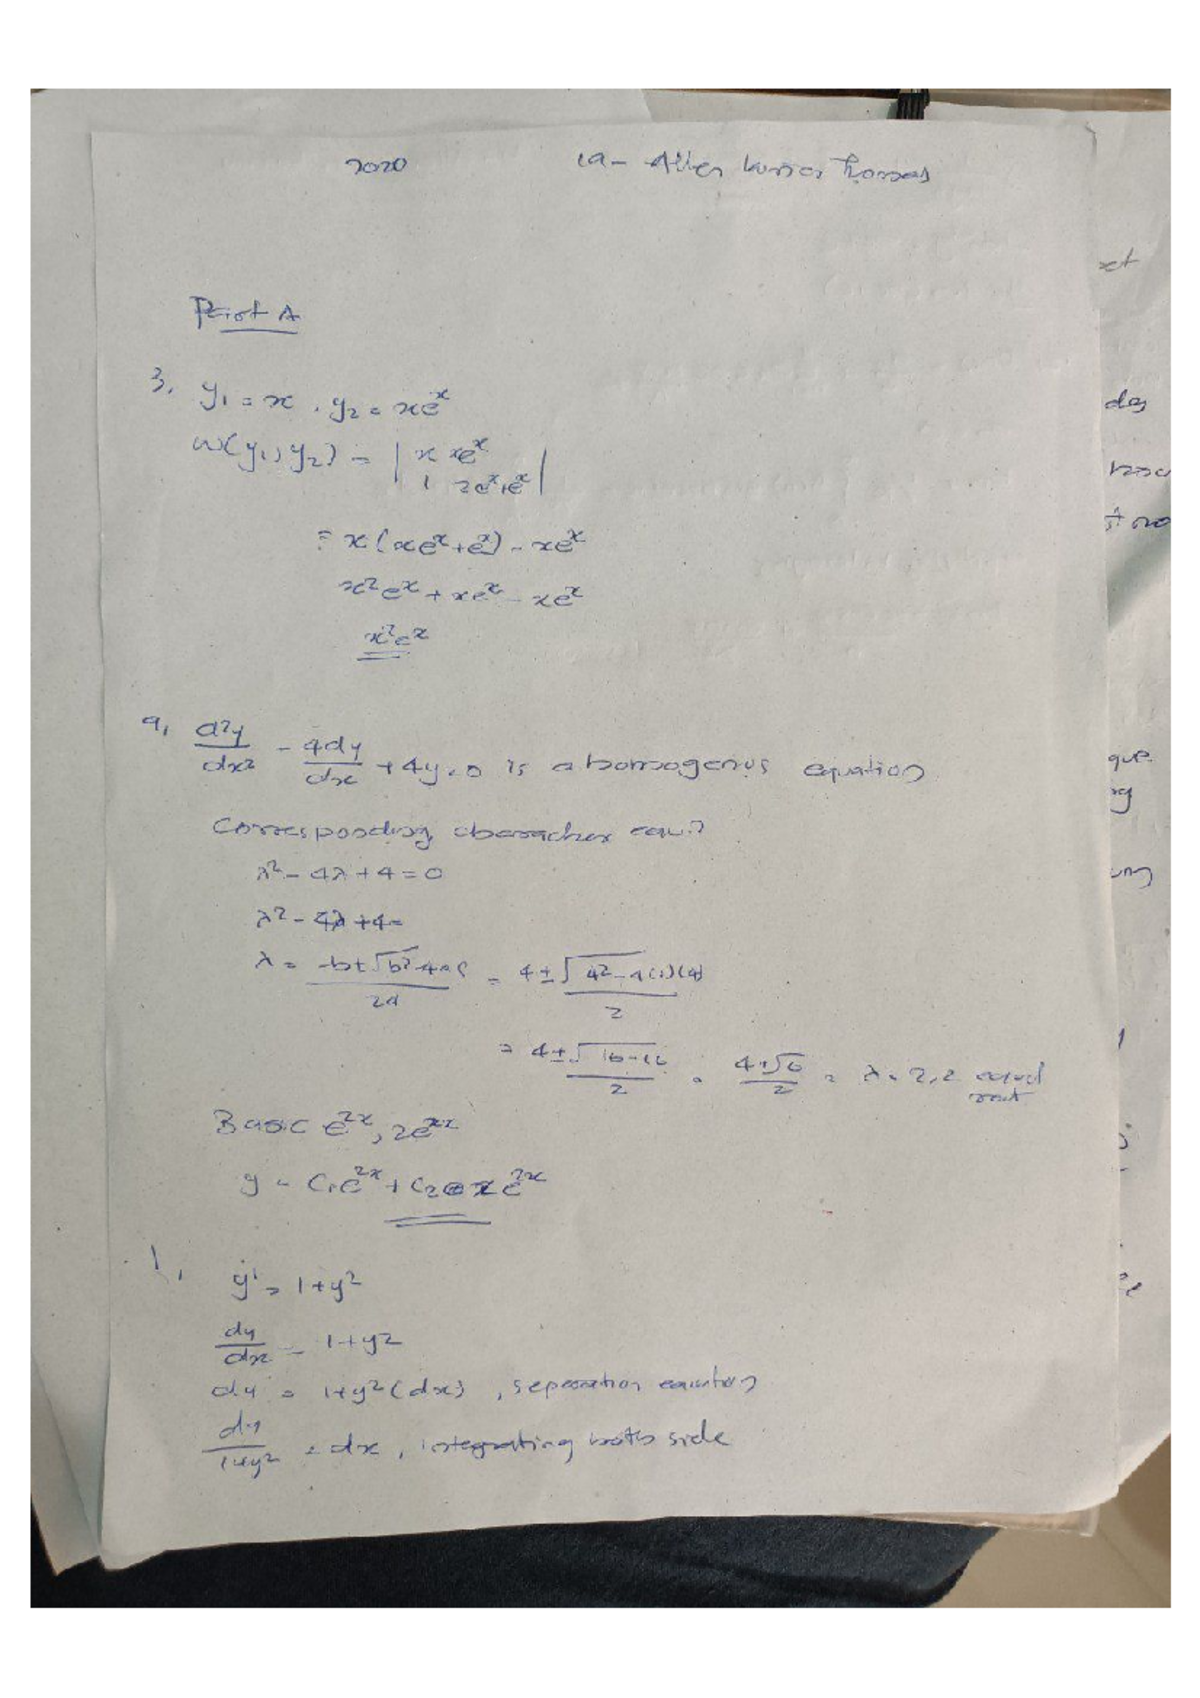 2020 19- Allen Kurian Thomas
Part A
3. y₁ = x , y₂ = xeˣ
w(y₁, y₂) = | x xeˣ
1 xeˣ+eˣ |
= x(xeˣ+eˣ) - xeˣ
x²eˣ + xeˣ - xeˣ
x²eˣ
9, d²y/dx² - 4dy/dx + 4y = 0 is a homogenus equation
Corresponding equ?
λ² - 4λ + 4 = 0
λ² - 4λ + 4 =
λ = -b±√b²-4ac/2a = 4±√4²-4(1)(4)/2
= 4±√16-16/2 = 4±√0/2 = λ = 2,2 equal
root
Basic e²ˣ, xe²ˣ
y = C₁e²ˣ + C₂ xe²ˣ
1, y' = 1+y²
dy/dx = 1+y²
dy = 1+y²(dx) , equation
dy/1+y² = dx , integrating both side
xt
des
que